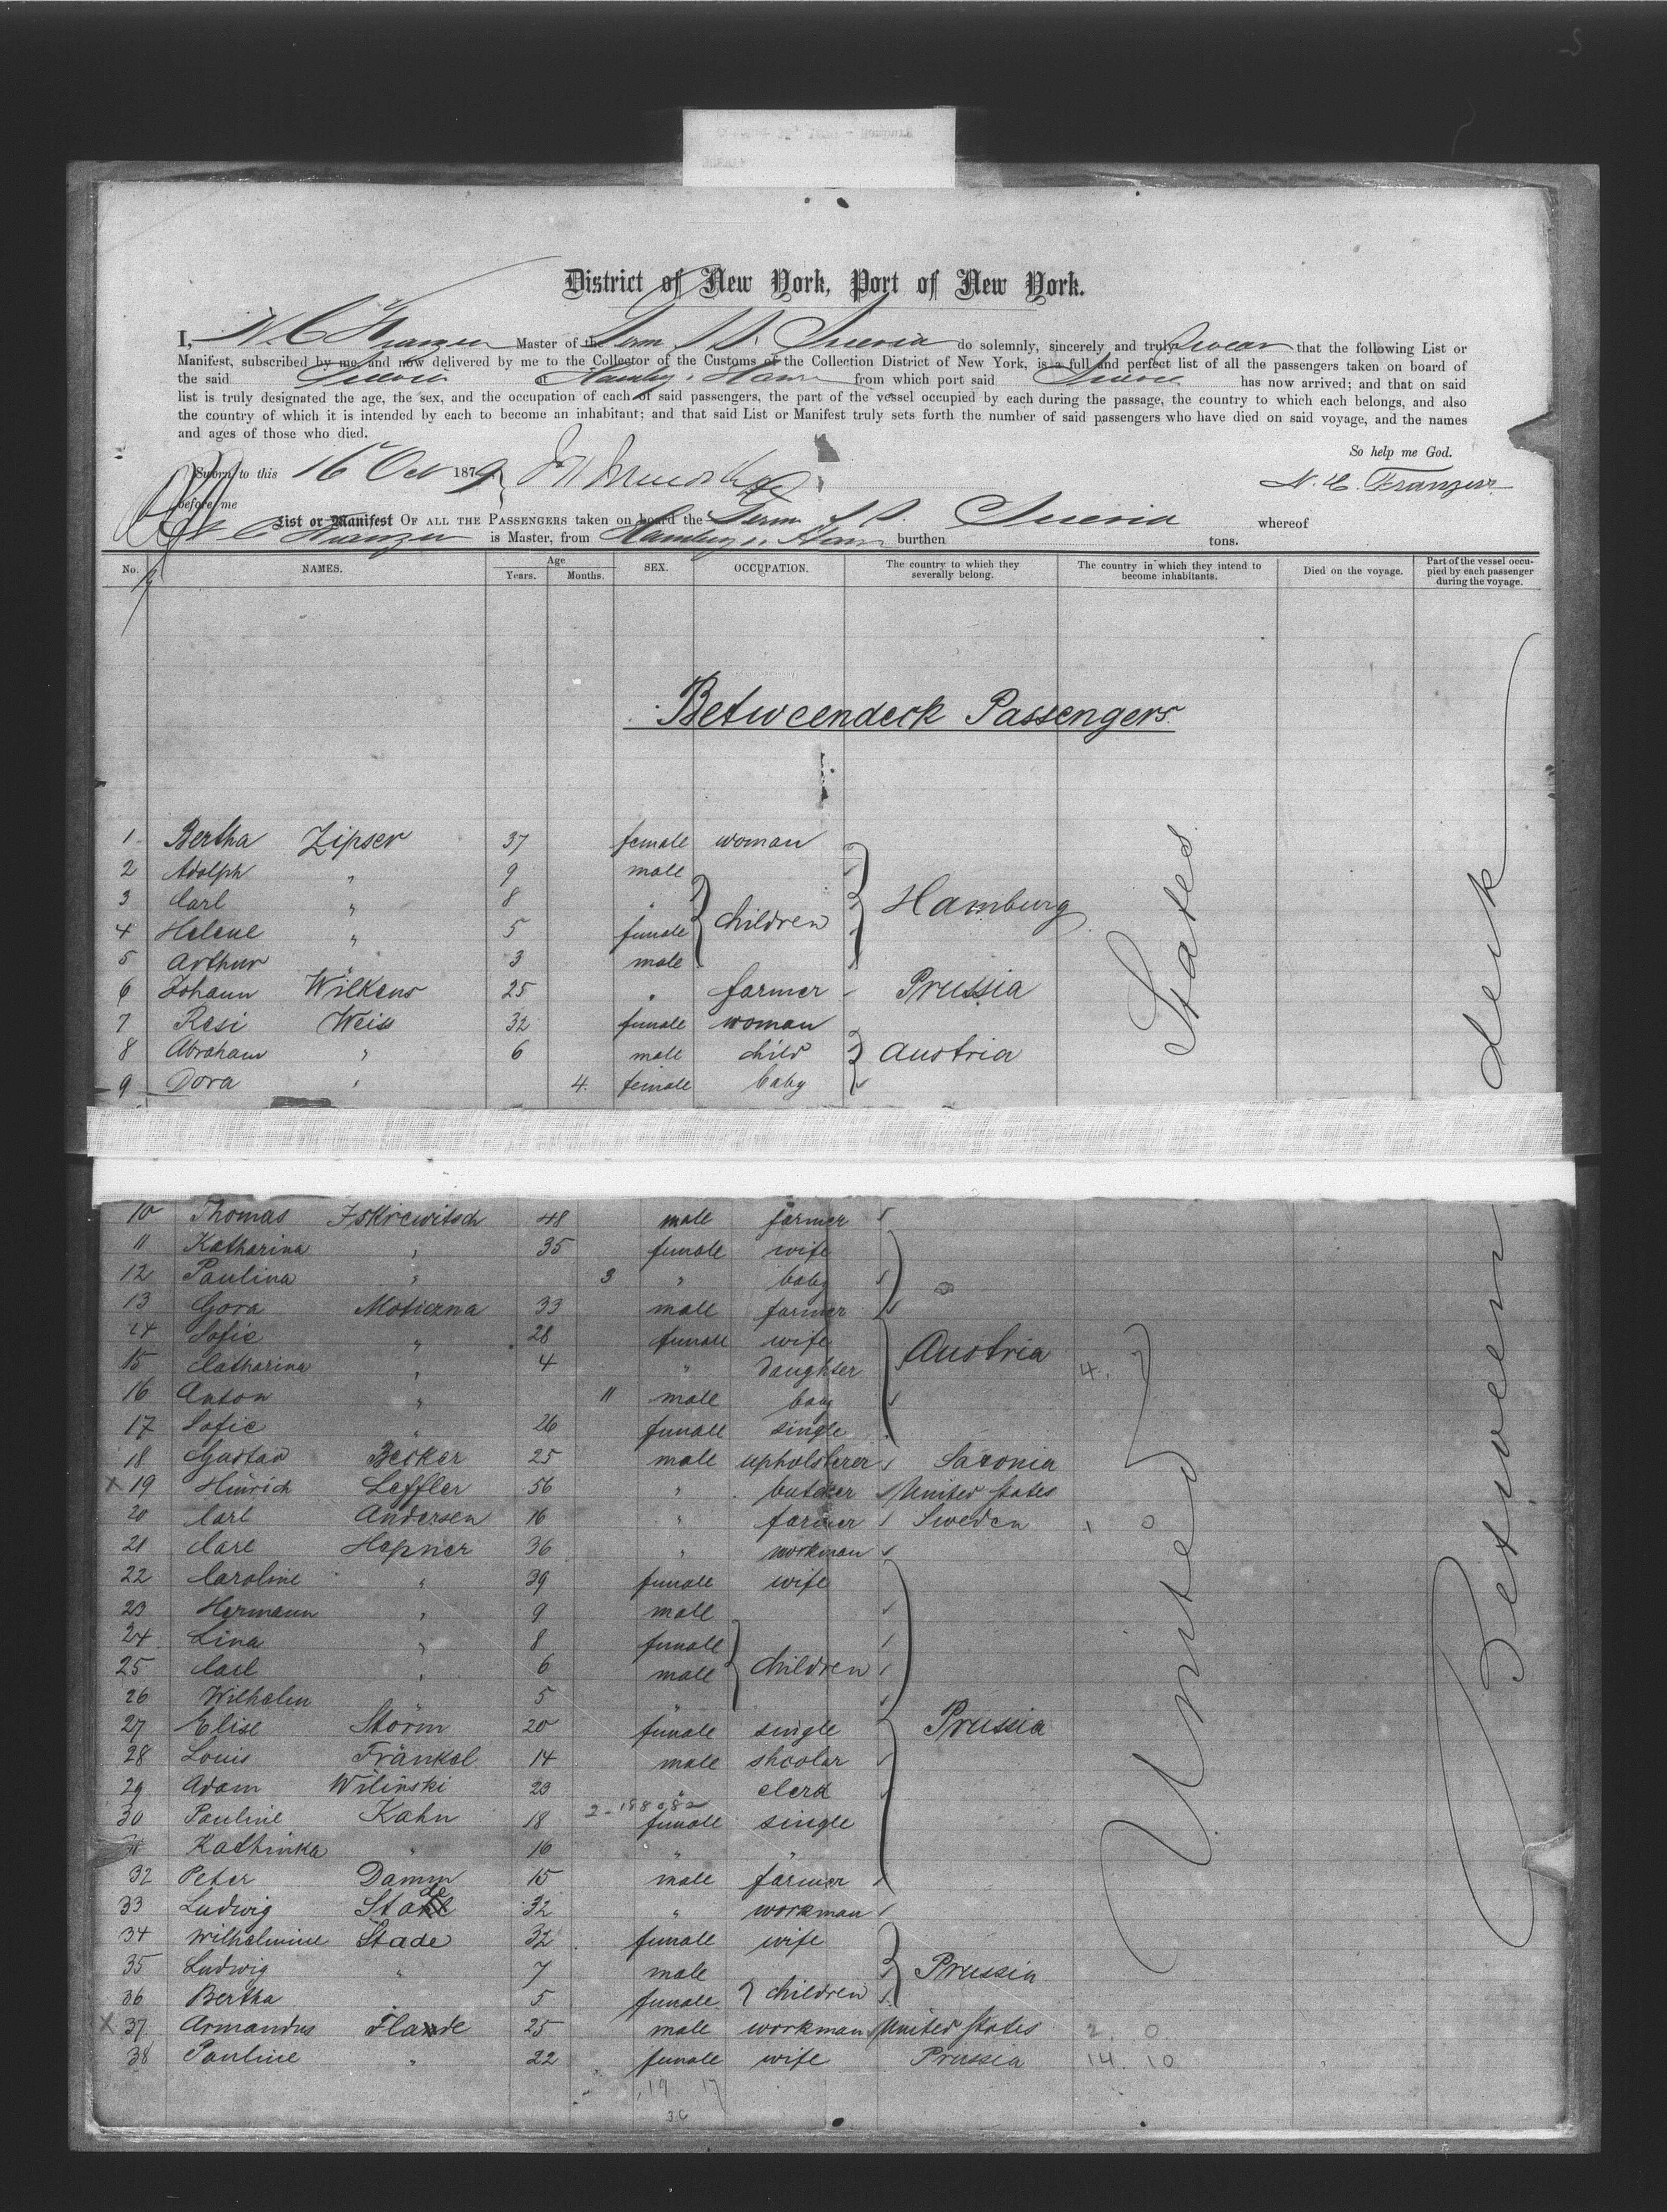 District of New York, Port of New York.
I, N. C. Franzen Master of the Germ. S. S. Suevia do solemnly, sincerely and truly swear that the following List or
Manifest, subscribed by me, and now delivered by me to the Collector of the Customs of the Collection District of New York, is a full and perfect list of all the passengers taken on board of
the said Suevia from which port said Suevia has now arrived; and that on said
list is truly designated the age, the sex, and the occupation of each of said passengers, the part of the vessel occupied by each during the passage, the country to which each belongs, and also
the country of which it is intended by each to become an inhabitant; and that said List or Manifest truly sets forth the number of said passengers who have died on said voyage, and the names
and ages of those who died.
So help me God.
Sworn to this 16 Oct 1879
N. C. Franzen
before me
List or Manifest OF ALL THE PASSENGERS taken on board the Germ. S. S. Suevia whereof
N C Franzen is Master, from Hamburg burthen tons.
No. NAMES. Age Years. Months. SEX. OCCUPATION. The country to which they severally belong. The country in which they intend to become inhabitants. Died on the voyage. Part of the vessel occupied by each passenger during the voyage.
Betweendeck Passengers
1 Bertha Zipser 37 female woman
2 Adolph " 9 male
3 Carl " 8 " children Hamburg
4 Helene " 5 female
5 Arthur " 3 male
6 Johann Wilkens 25 " farmer Prussia
7 Resi Weiss 32 female woman
8 Abraham " 6 male child Austria
9 Dora " 4 female baby
10 Thomas Iskrewitsch 48 male farmer
11 Katharina " 35 female wife
12 Paulina " 3 " baby
13 Gora Motierna 33 male farmer
14 Sofie " 28 female wife Austria
15 Catharina " 4 " daughter 4.
16 Anton " 11 male baby
17 Sofie " 26 female single
18 Gustav Becker 25 male upholsterer Saxonia
X 19 Hinrich Leffler 56 " butcher United States
20 Carl Andersen 16 " farmer Sweden 1 0
21 Carl Hepner 36 " workman
22 Caroline " 39 female wife
23 Hermann " 9 male
24 Lina " 8 female
25 Carl " 6 male children
26 Wilhelm " 5 "
27 Elise Störm 20 female single Prussia
28 Louis Fränkel 14 male shcolar
29 Adam Wilinski 23 " clerk
30 Pauline Kahn 18 female single
31 Kathinka " 16 " "
32 Peter Damm 15 male farmer
33 Ludwig Stade 32 " workman
34 Wilhelmine Stade 32 female wife
35 Ludwig " 7 male Prussia
36 Bertha " 5 female children
X 37 Armandus Flande 25 male workman United States 2. 0
38 Pauline " 22 female wife Prussia 14. 10
19 17
36
United States
Between deck